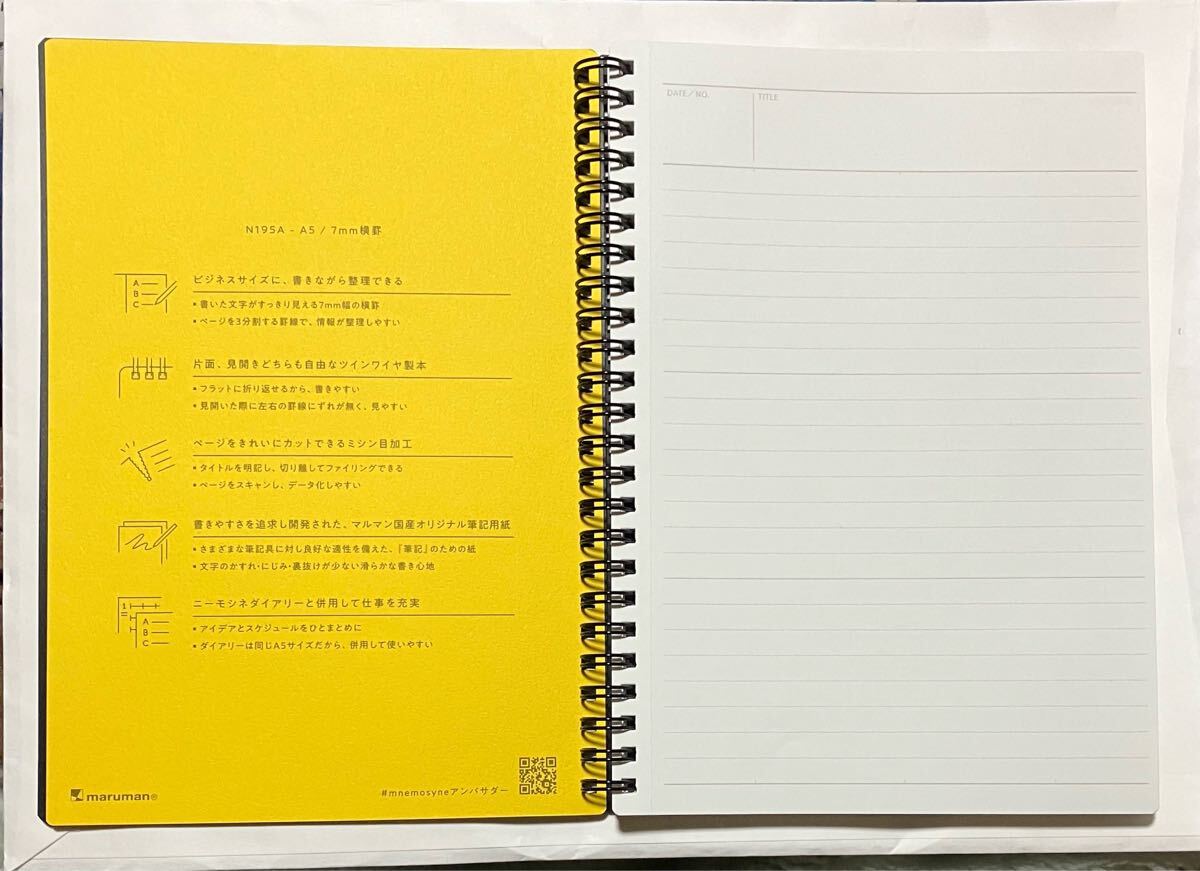 N195A - A5 / 7mm横罫
A
B
C
ビジネスサイズに、書きながら整理できる
▪ 書いた文字がすっきり見える7mm幅の横罫
▪ ページを3分割する罫線で、情報が整理しやすい
片面、見開きどちらも自由なツインワイヤ製本
▪ フラットに折り返せるから、書きやすい
▪ 見開いた際に左右の罫線にずれが無く、見やすい
ページをきれいにカットできるミシン目加工
▪ タイトルを明記し、切り離してファイリングできる
▪ ページをスキャンし、データ化しやすい
書きやすさを追求し開発された、マルマン国産オリジナル筆記用紙
▪ さまざまな筆記具に対し良好な適性を備えた、『筆記』のための紙
▪ 文字のかすれ・にじみ・裏抜けが少ない滑らかな書き心地
1
A
B
C
ニーモシネダイアリーと併用して仕事を充実
▪ アイデアとスケジュールをひとまとめに
▪ ダイアリーは同じA5サイズだから、併用して使いやすい
maruman®
#mnemosyneアンバサダー
DATE/NO.
TITLE